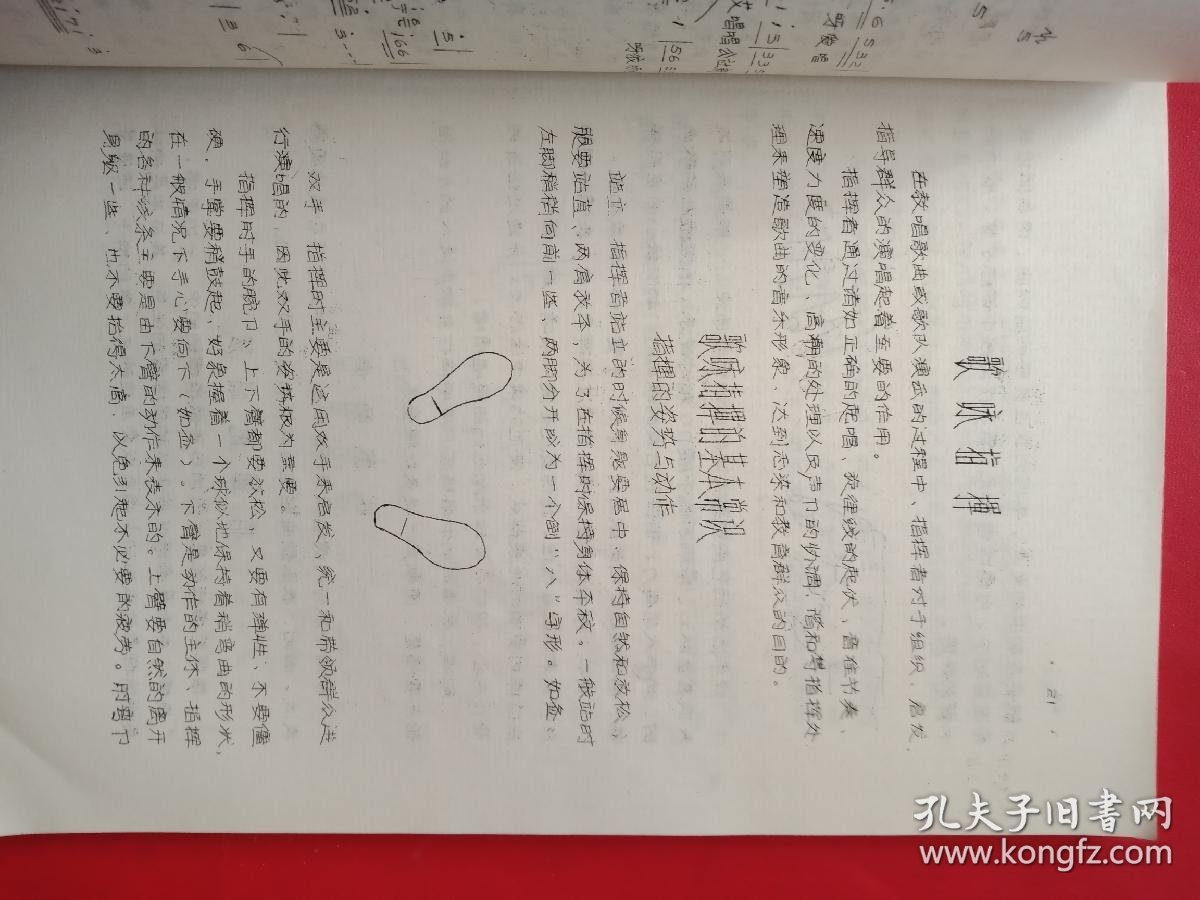 21
歌咏指挥
在教唱歌曲或歌队演岀的过程中、指挥者对于组织、启发、
指导群众的演唱起着至要的作用。
指挥者通过诸如正确的起唱、旋律线的起伏、音准节奏、
速度力度的变化、高潮的处理以及声卩的协调、谐和等指挥处
理来塑造歌曲的音乐形象、达到感染和教育群众的目的。
歌咏指挥的基本常识
指挥的姿势与动作
站立 指挥者站立的时候身躯要居中、保持自然和放松、
腿要站直、两肩放平，为了在指挥时保持身体平稳。一般站时
左脚稍稍向前一些、两脚分开成为一个倒“八”字形。如图。
双手 指挥时主要是运用双手来启发、统一和带领群众进
行演唱的、因此双手的姿势极为重要。
指挥时手的腕卩、上下臂都要放松，又要有弹性、不要僵
硬，手掌要稍鼓起、好象握着一个球似地保持着稍弯曲的形状，
在一般情况下手心要向下（如图）。下臂是动作的主体、指挥
的各种线条主要是由下臂的动作来表示的。上臂要自然的离开
身躯一些、也不要抬得太高、以免引起不必要的疲劳。肘弯卩
牙儿唱
艾 唱唱
孔夫子旧書网
www.kongfz.com